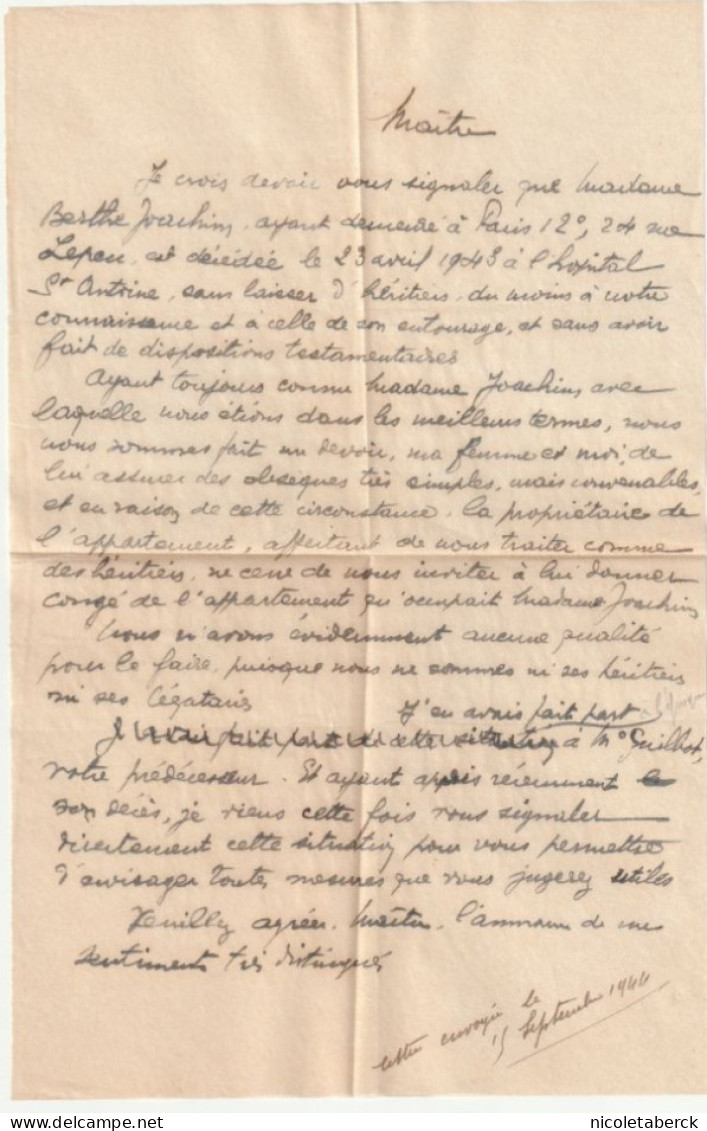 Maître
Je crois devoir vous signaler que Madame
Berthe Joachim, ayant demeuré à Paris 12°, 24 rue
Lepeu, est décédée le 23 avril 1943 à l'hopital
St Antoine, sans laisser d'héritiers, du moins à notre
connaissance et à celle de son entourage, et sans avoir
fait de dispositions testamentaires
Ayant toujours connu Madame Joachim avec
laquelle nous étions dans les meilleurs termes, nous
nous sommes fait un devoir, ma femme et moi, de
lui assurer des obsèques très simples, mais convenables,
et en raison de cette circonstance, la propriétaire de
l'appartement, affectant de nous traiter comme
des héritiers, ne cesse de nous inviter à lui donner
congé de l'appartement qu'occupait Madame Joachim
Nous n'avons évidemment aucune qualité
pour le faire, puisque nous ne sommes ni ses héritiers
ni ses légataires J'en avais fait part
J'avais fait part de cette situation à Me Guilbot,
votre prédécesseur. Et ayant appris récemment le
son décès, je viens cette fois vous signaler
directement cette situation pour vous permettre
d'envisager toutes mesures que vous jugerez utiles
Veuillez agréer, Maître, l'assurance de mes
sentiments très distingués
lettre envoyée le
15 Septembre 1944
www.delcampe.net
nicoletaberck